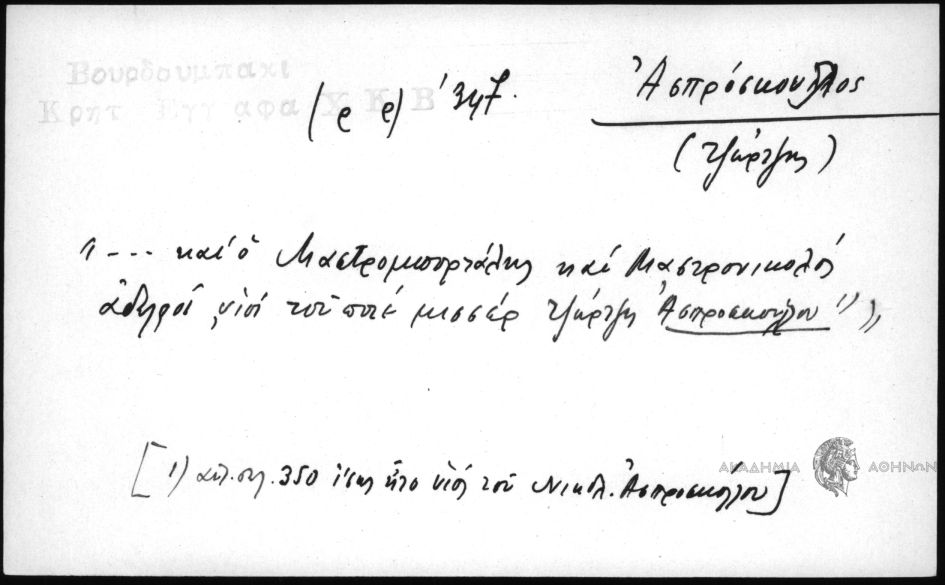 Βουρδουμπακι
Κρητ Εγγραφα Χ Κ Β
(ρ ρ) 347.
Ἀσπρόσκουλλος
(Τζώρτζης)
"... καί ὁ Μαστρομπορτάλης καί Μαστρονικολός
ἀδελφοί υἱοί τοῦ ποτέ μισσέρ Τζώρτζη Ἀσπροσκούλλου" 1),
[1) σελ. 350 ἴσως ἦτο υἱός τοῦ Νικολ. Ἀσπροσκούλλου]
ΑΚΑΔΗΜΙΑ ΑΘΗΝΩΝ